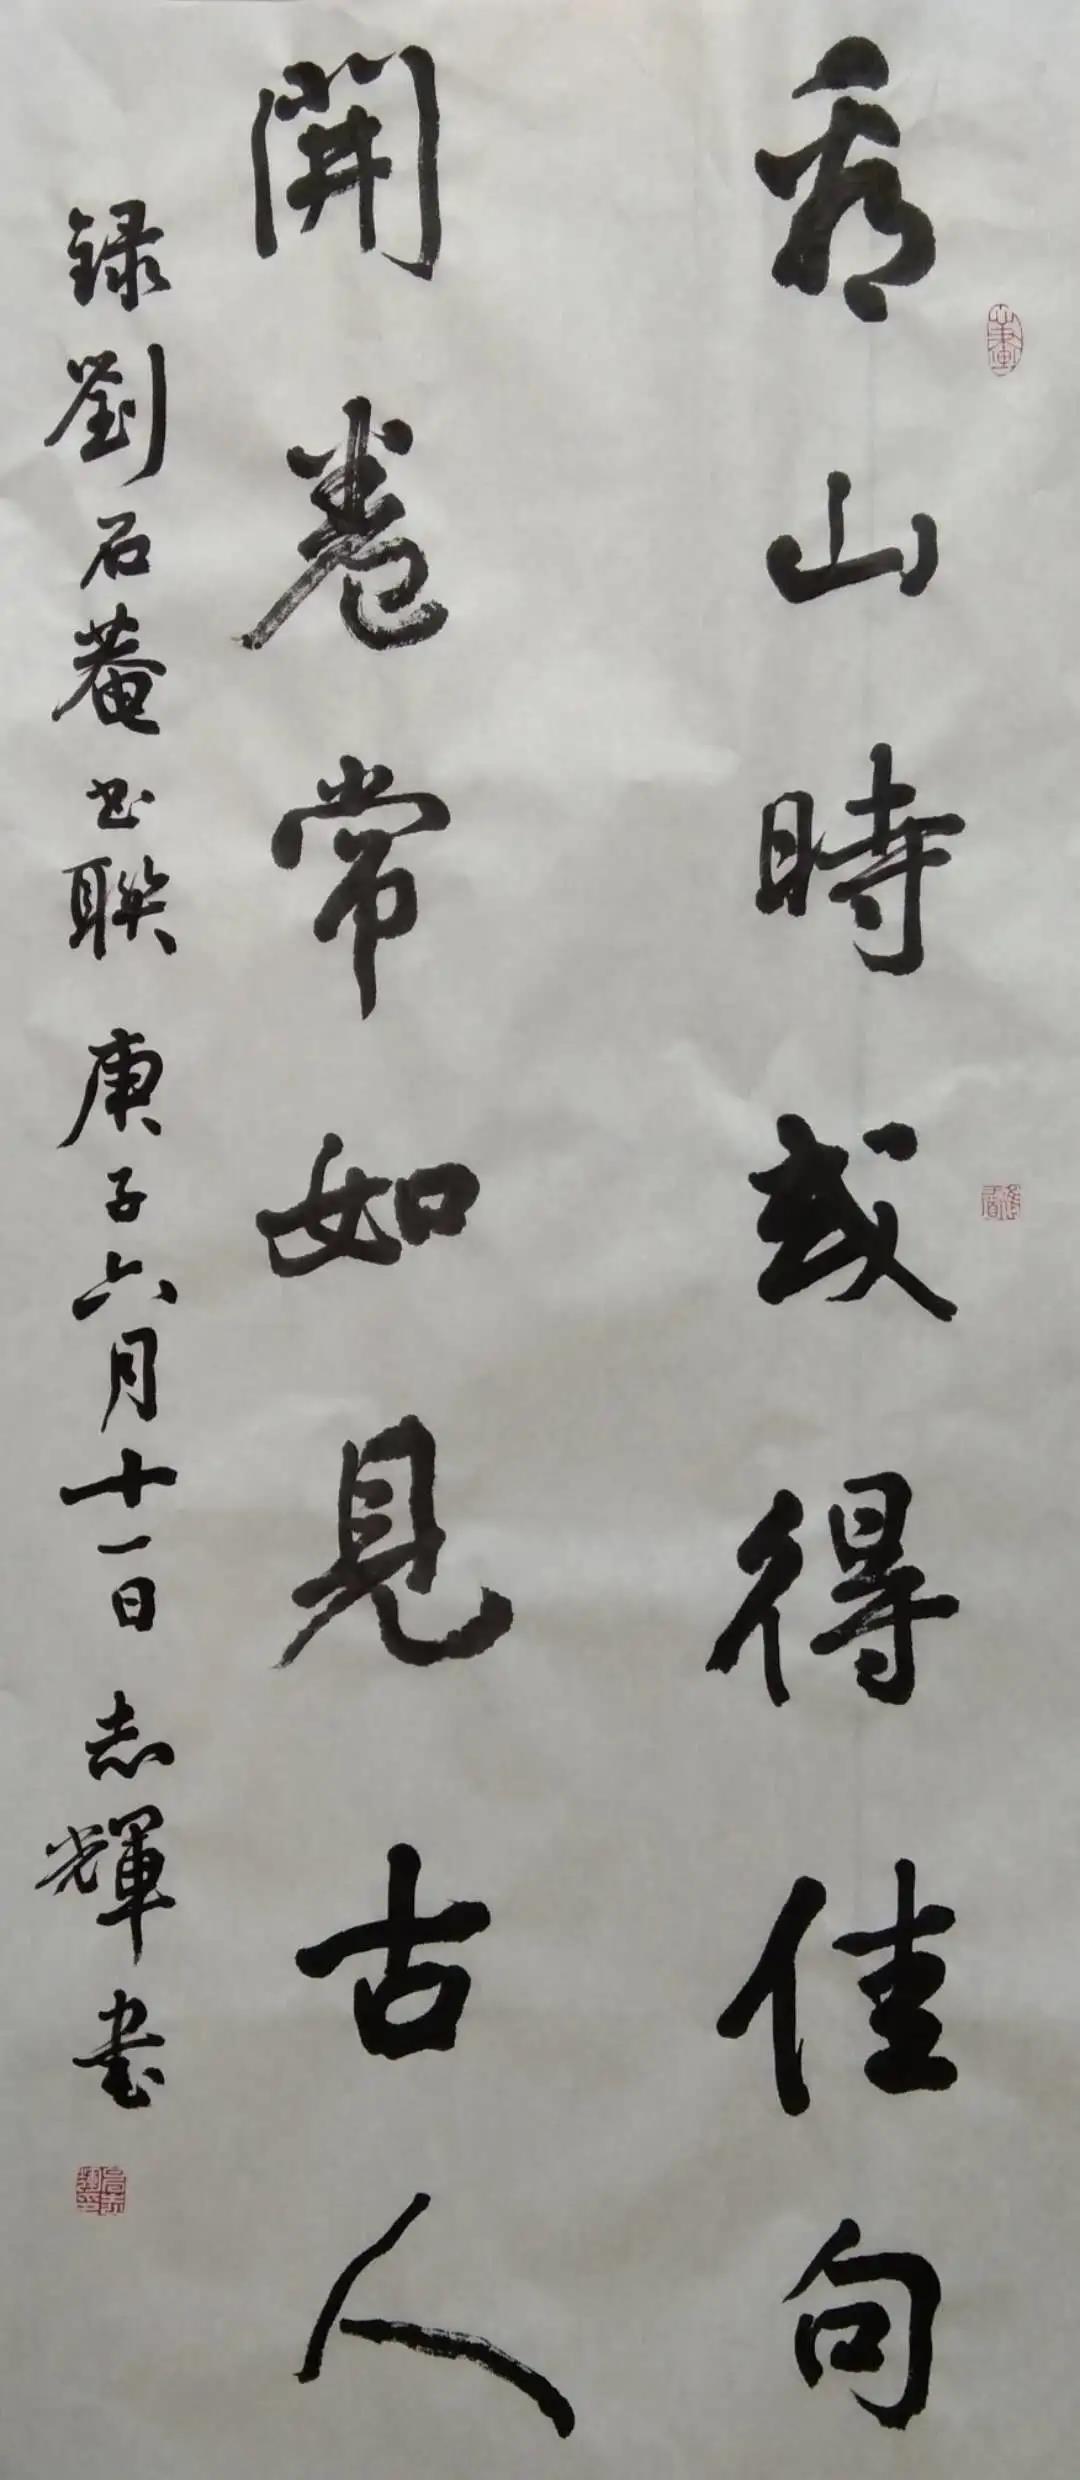 看山時或得佳句
開卷常如見古人
録劉石菴书聯 庚子六月十一日 志輝書